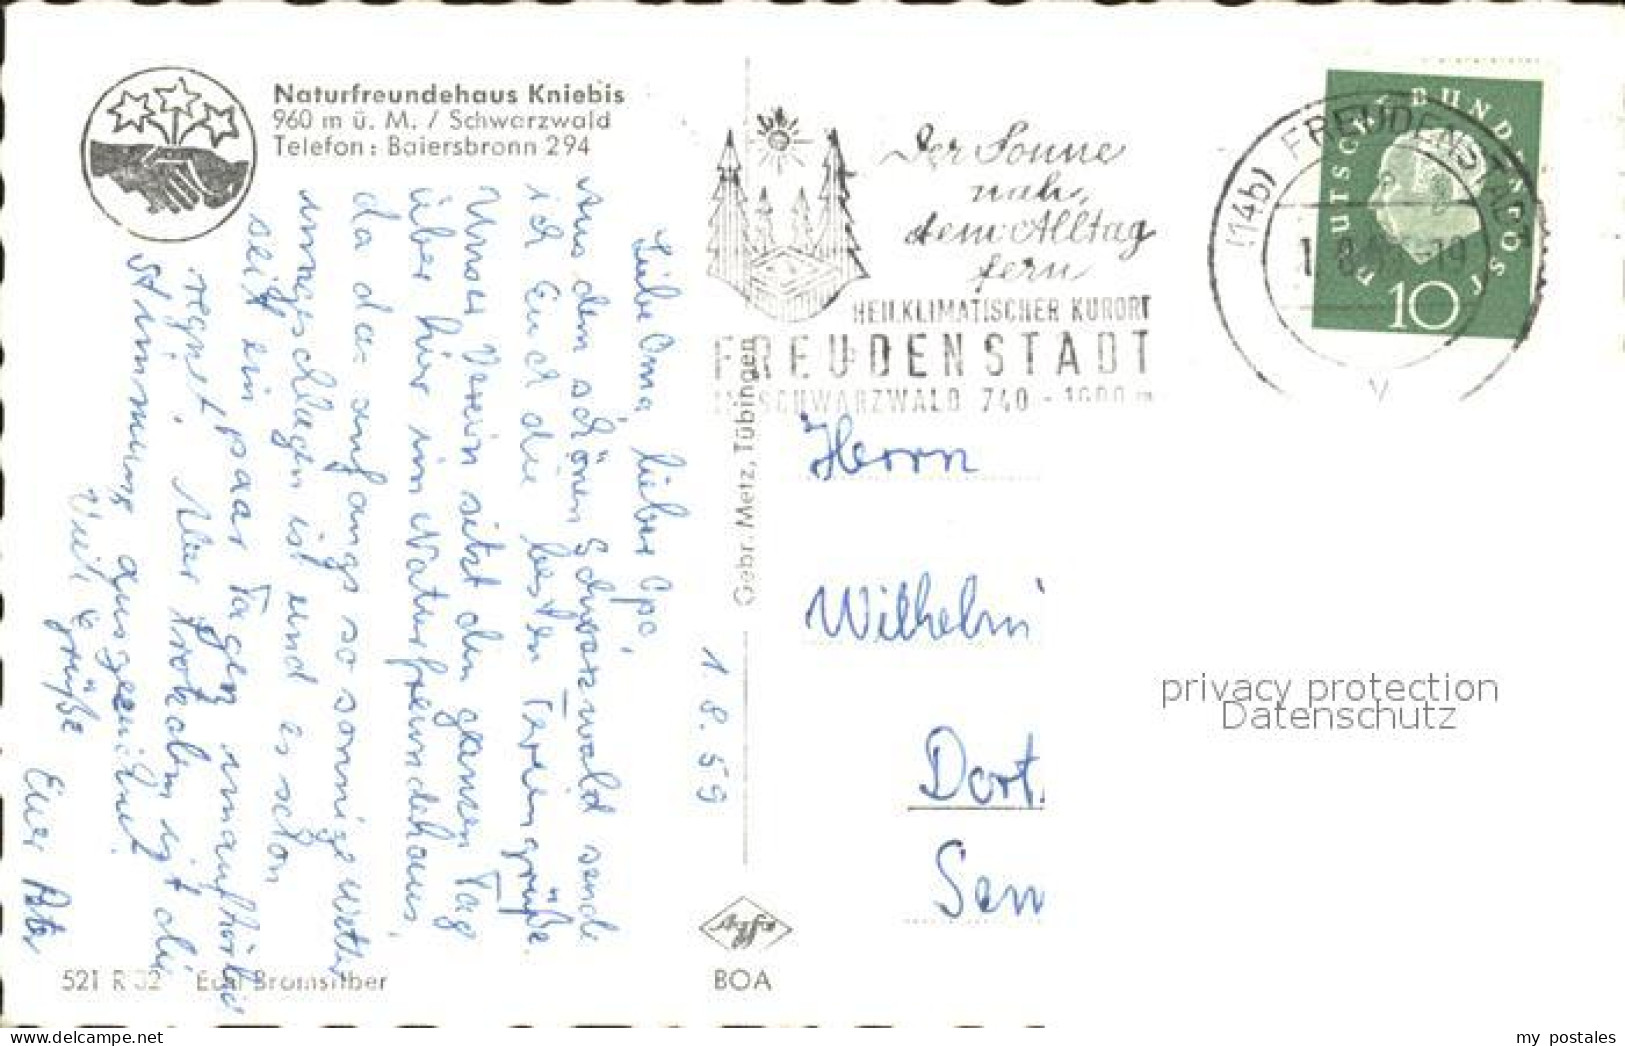 Naturfreundehaus Kniebis
960 m ü. M. / Schwarzwald
Telefon: Baiersbronn 294
Liebe Oma, lieber Opa,
Aus dem schönen Schwarzwald sende
ich Euch die besten Feriengrüße.
Unser Verein sitzt den ganzen Tag
über hier im Naturfreundehaus,
da das anfangs so sonnige Wetter
umgeschlagen ist und es schon
seit ein paar Tagen unaufhörlich
regnet. Aber trotzdem ist die
Stimmung ausgezeichnet.
Viele Grüße
Euer Peter
1. 8. 59
Gebr. Metz, Tübingen
Der Sonne
nah,
dem Alltag
fern
HEILKLIMATISCHER KURORT
FREUDENSTADT
IM SCHWARZWALD 740 - 1000 m
(14b) FREUDENSTADT
DEUTSCHE BUNDESPOST
10
Herrn
Wilhelm
Dort
Sen
privacy protection
Datenschutz
521 R 32 Echt Bromsilber
Agfa
BOA
my postales